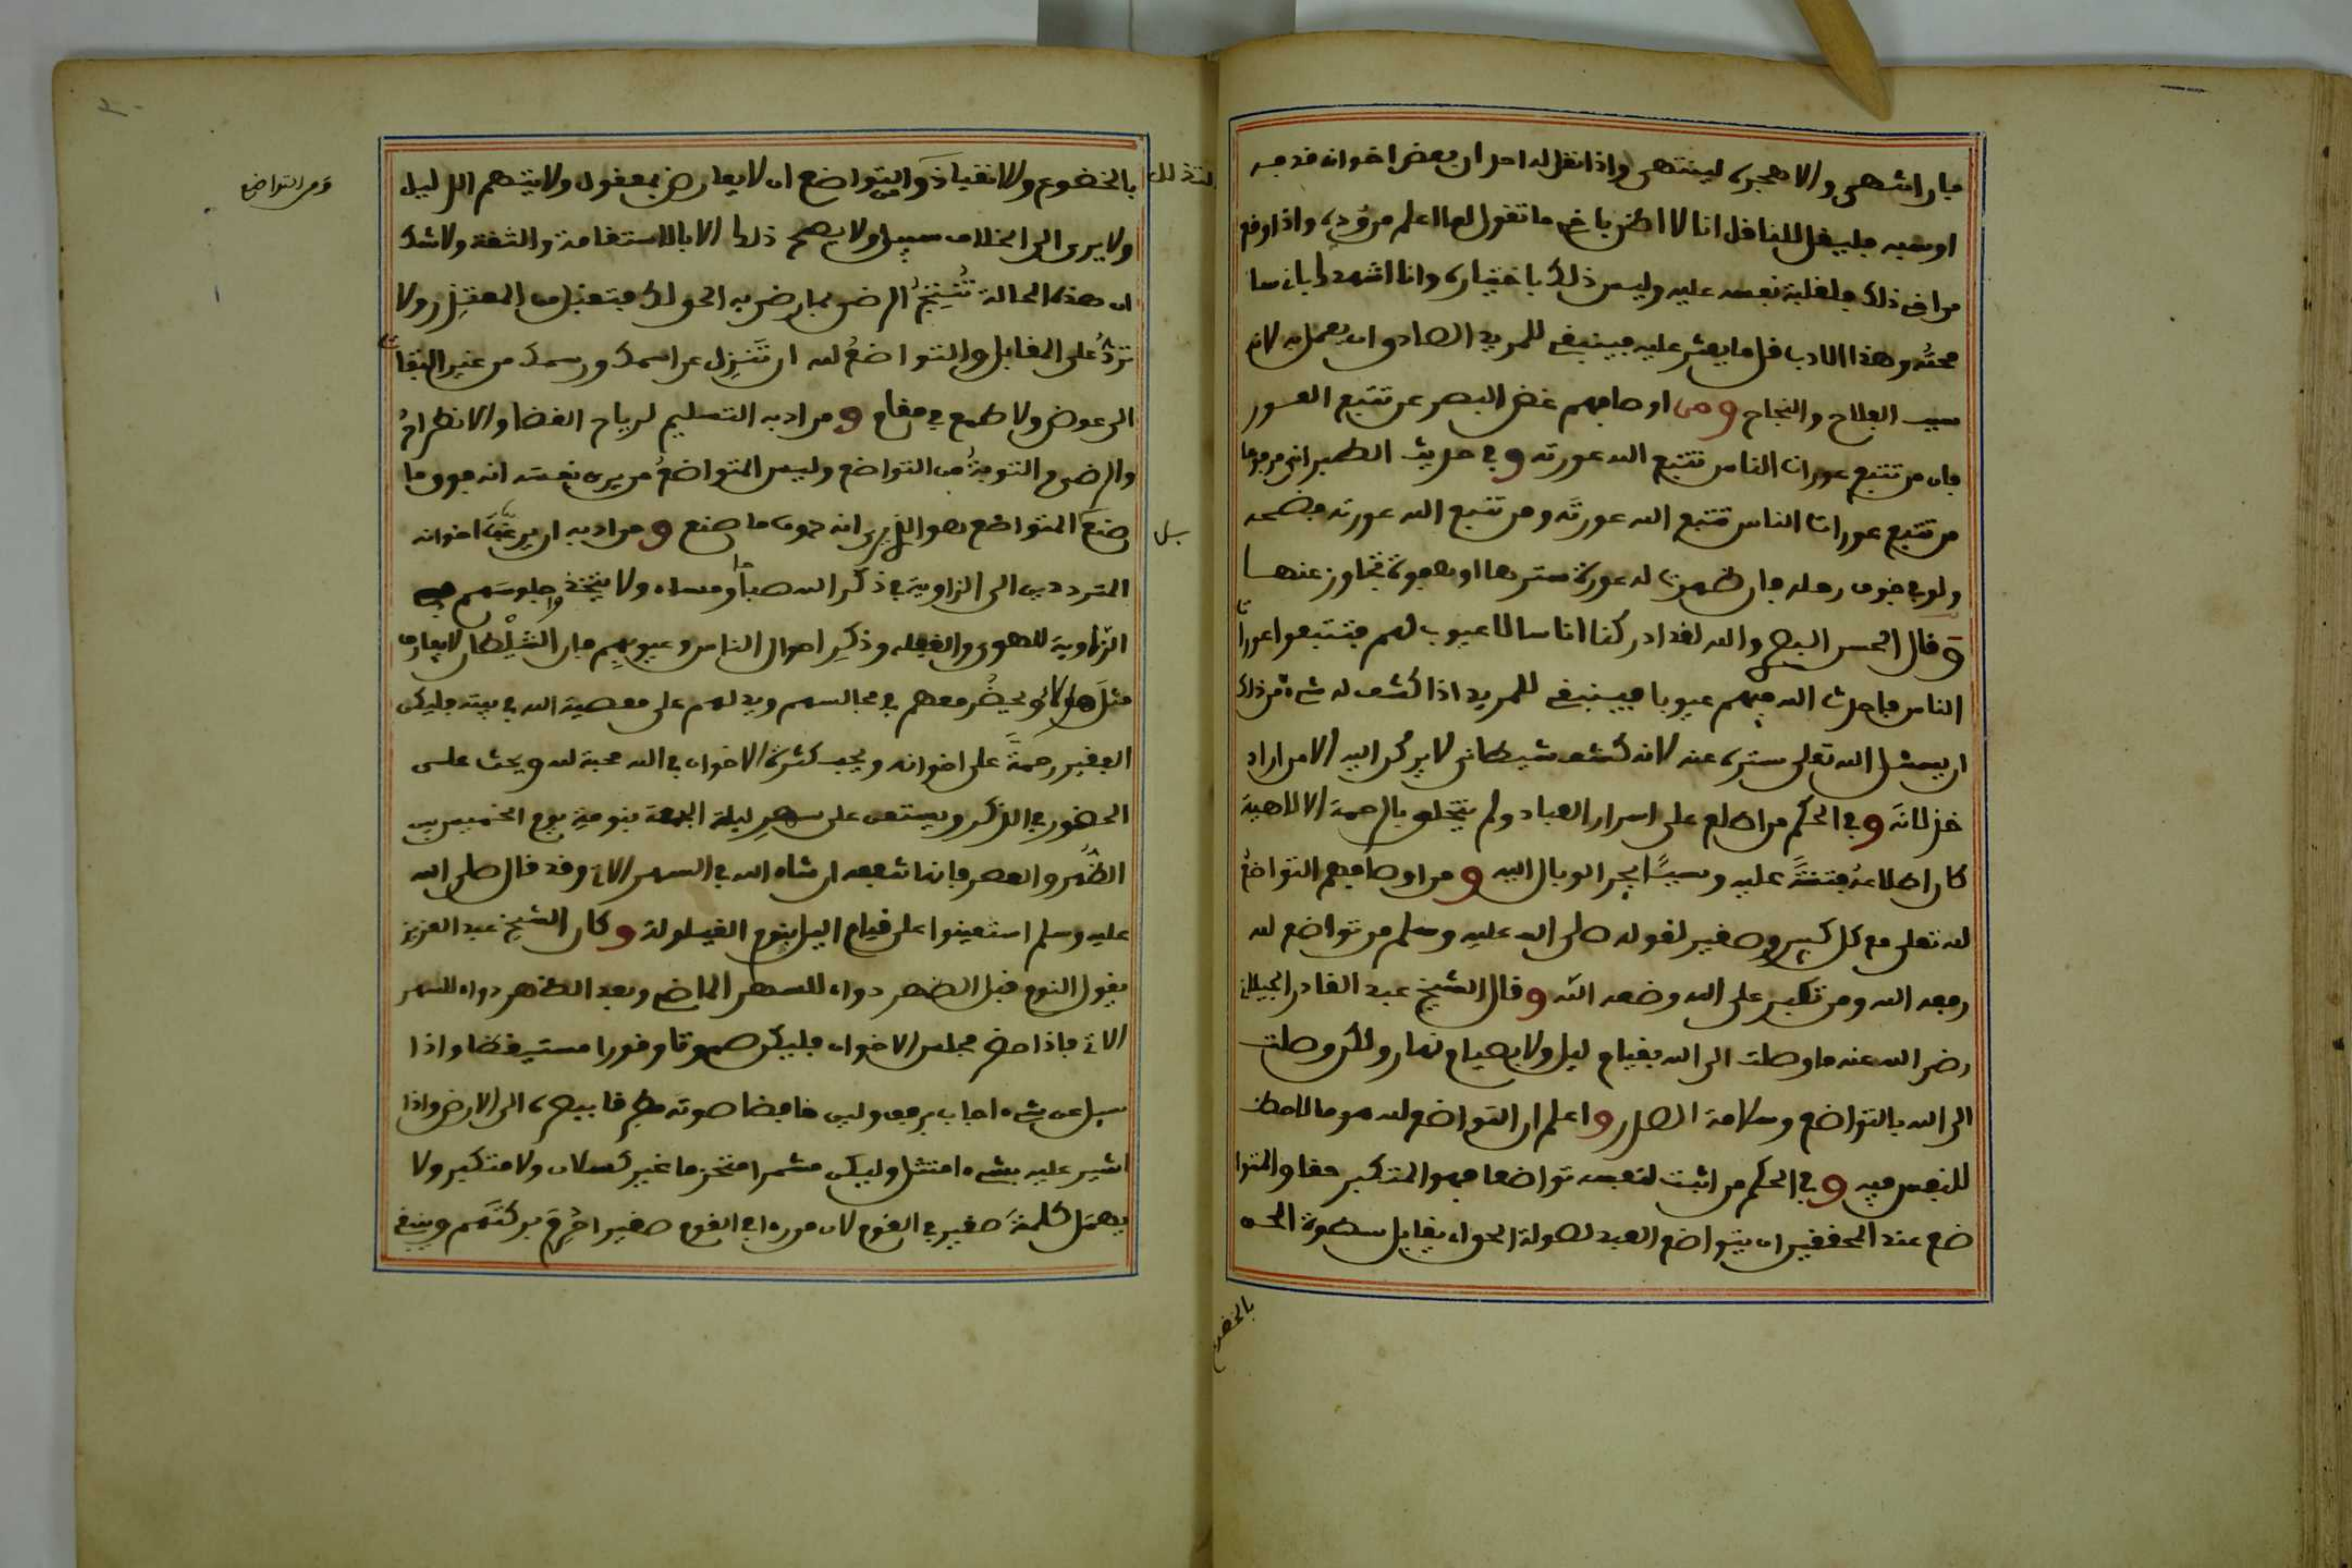 فان انتهى والا هجره لينتهى واذا نقل له احد ان بعض اخوانه قدح فيه
او سبه فليقل للناقل انا لا اظن باخي ما تقول لما اعلم من وده واذا وقع
من اخى ذلك فلغلبة نفسه عليه وليس ذلك باختياره وانا اشهدك بانه سا
محته وهذا الادب قل ما يعثر عليه فينبغي للمريد الصادق ان يعمل به لانه
سبب الفلاح والنجاح ومن اوصافهم غض البصر عن تتبع العور
فان من تتبع عورات الناس تتبع الله عورته وفي حديث الطبراني مرفوعا
من تتبع عورات الناس تتبع الله عورته ومن تتبع الله عورته فضحه
ولو في جوف رحله فان ظهرت له عورة سترها او هفوة تجاوز عنها
وقال الحسن البصري والله لقد ادركنا اناسا لا عيوب لهم فتتبعوا عورات
الناس فاحدث الله فيهم عيوبا فينبغي للمريد اذا كشف له شيء من ذلك
ان يسئل الله تعلى ستره عنه لانه كشف شيطاني لا يركن اليه الا من اراد
خذلانه وفي الحكم من اطلع على اسرار العباد ولم يتخلق بالرحمة الالاهية
كان اطلاعه فتنة عليه وسببا يجر الوبال اليه ومن اوصافهم التواضع
لله تعلى مع كل كبير وصغير لقوله صلى الله عليه وسلم من تواضع لله
رفعه الله ومن تكبر على الله وضعه الله وقال الشيخ عبد القادر الجيلاني
رضي الله عنه ما وصلت الى الله بقيام ليل ولا بصيام نهار ولكن وصلت
الى الله بالتواضع وسلامة الصدر واعلم ان التواضع لله هو ما لا حظ
للنفس فيه وفي الحكم من اثبت لنفسه تواضعا فهو المتكبر حقا والتوا
ضع عند المحققين ان يتواضع العبد لصولة الحق اي يقابل سطوة الحق
بالخضوع
ومن التواضع
بالخضوع والانقياد ومن التواضع ان لا يعارض بمعقول ولا يتهم الدليل
ولا يرى الى الخلاف سبيلا ولا يصح ذلك الا بالاستقامة والثقة ولا شك
ان هذه الحالة تنتج الرضى بما رضي به الحق لك فتقبل من المعتذر ولا
ترد على المقابل والتواضع لله ان تنزل عن اسمك ورسمك من غير التفات
الى عوض ولا طمع في مقام ومن ادبه التسليم لرياح القضا والانطراح
والرضى والتوبة من التواضع وليس المتواضع من يرى نفسه انه فوق ما
صنع بل المتواضع هو الذي يرى انه دون ما صنع ومن ادبه ان يرغب اخوانه
المترددين الى الزاوية في ذكر الله صباحا ومساء ولا يتخذوا جلوسهم في
الزاوية للهو والغفلة وذكر احوال الناس وعيوبهم فان الشيطان لا يفارق
مثل هولاء ويحضر معهم في مجالسهم ويدلهم على معصية الله في بيته فليكن
الفقير رحمة على اخوانه ويحب كثرة الاخوان في الله محبة لله ويحث على
الحضور في الذكر ويستعن على سهر ليلة الجمعة بنومة يوم الخميس بين
الظهر والعصر فانها تنفعه ان شاء الله في السهر الاتي وقد قال صلى الله
عليه وسلم استعينوا على قيام اليل بنوم القيلولة وكان الشيخ عبد العزيز
يقول النوم قبل الظهر دواء للسهر الماضي وبعد الظهر دواء للسهر
الاتي فاذا حضر مجلس الاخوان فليكن صموتا وقورا مستيقظا واذا
سئل عن شيء اجاب برفق ولين خافضا صوته مطرقا ببصره الى الارض واذا
اشير عليه بشيء امتثل وليكن مشمرا متحزما غير كسلان ولا متكبر ولا
يهمل كلمة صغير في القوم لان من راى في القوم صغيرا حرم بركتهم وينبغي